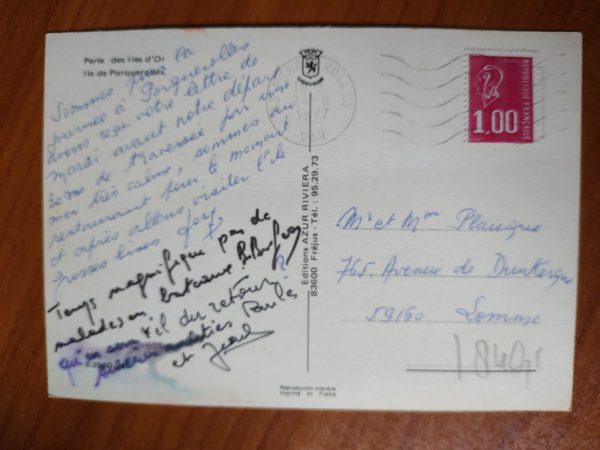 Perle des Iles d'Or
Ile de Porquerolles
Sommes pour la
journée à Porquerolles
avons reçu votre lettre de
mardi avant notre départ
de traversée par une
mer très calme, sommes au
restaurant pour le moment
et après allons visiter l'île
grosses bises Jory
Temps magnifique pas de
malades en bateaux
qu'en sera-t-il du retour ?
amitiés Paules
et Jean
83600
Editions AZUR RIVIERA
83600 Fréjus - Tél. : 95.29.73
Reproduction interdite
Imprimé en France
PORQUEROLLES
24-8
1977
VAR
REPUBLIQUE FRANÇAISE
1,00
Mr et Mme Plauque
765 Avenue de Dunkerque
59160 Lomme
1840